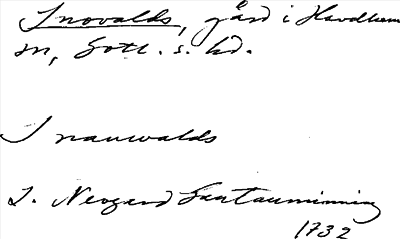 Snovalds, gård i Havdhem
sn, Gotl. s. hd.
Snauwalds
L. Neogard Gautauminning
1732